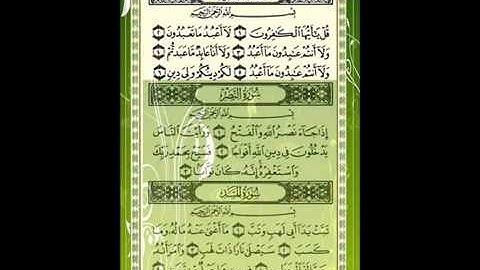 بِسْمِ اللَّهِ الرَّحْمَٰنِ الرَّحِيمِ
قُلْ يَا أَيُّهَا الْكَافِرُونَ ١ لَا أَعْبُدُ مَا تَعْبُدُونَ ٢
وَلَا أَنتُمْ عَابِدُونَ مَا أَعْبُدُ ٣ وَلَا أَنَا عَابِدٌ مَّا عَبَدتُّمْ ٤
وَلَا أَنتُمْ عَابِدُونَ مَا أَعْبُدُ ٥ لَكُمْ دِينُكُمْ وَلِيَ دِينِ ٦
سُورَةُ النَّصْرِ
بِسْمِ اللَّهِ الرَّحْمَٰنِ الرَّحِيمِ
إِذَا جَاءَ نَصْرُ اللَّهِ وَالْفَتْحُ ١ وَرَأَيْتَ النَّاسَ
يَدْخُلُونَ فِي دِينِ اللَّهِ أَفْوَاجًا ٢ فَسَبِّحْ بِحَمْدِ رَبِّكَ
وَاسْتَغْفِرْهُ إِنَّهُ كَانَ تَوَّابًا ٣
سُورَةُ الْمَسَدِ
بِسْمِ اللَّهِ الرَّحْمَٰنِ الرَّحِيمِ
تَبَّتْ يَدَا أَبِي لَهَبٍ وَتَبَّ ١ مَا أَغْنَىٰ عَنْهُ مَالُهُ وَمَا
كَسَبَ ٢ سَيَصْلَىٰ نَارًا ذَاتَ لَهَبٍ ٣ وَامْرَأَتُهُ